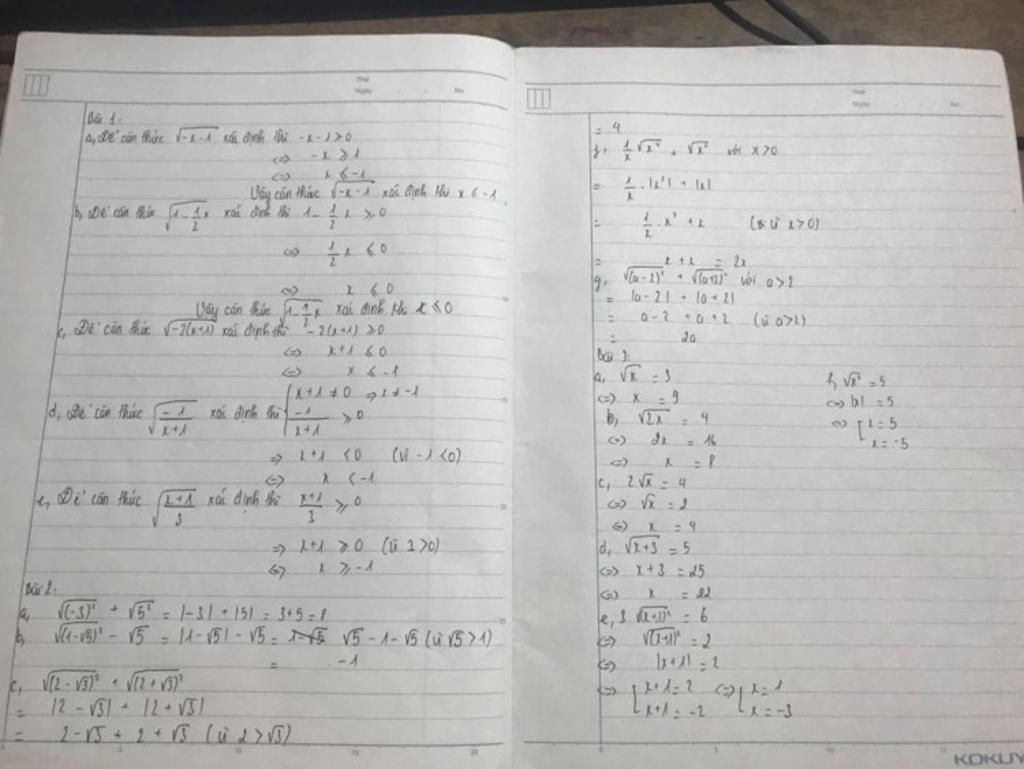 Bài 1:
a, Để căn thức √(-x-1) xác định thì -x-1 ≥ 0
<=> -x ≥ 1
<=> x ≤ -1
Vậy căn thức √(-x-1) xác định khi x ≤ -1
b, Để căn thức √(1-1/2x) xác định thì 1-1/2x ≥ 0
<=> 1/2x ≤ 0
<=> x ≤ 0
Vậy căn thức √(1-1/2x) xác định khi x ≤ 0
c, Để căn thức √(-2(x+1)) xác định thì -2(x+1) ≥ 0
<=> x+1 ≤ 0
<=> x ≤ -1
d, Để căn thức √(-1/(x+1)) xác định thì { x+1 ≠ 0 => x ≠ -1
-1/(x+1) ≥ 0
=> x+1 < 0 (vì -1 < 0)
<=> x < -1
e, Để căn thức √((x+1)/3) xác định thì (x+1)/3 ≥ 0
=> x+1 ≥ 0 (vì 2 > 0)
<=> x ≥ -1
Bài 2:
a, √(-3)² + √5² = |-3| + |5| = 3+5 = 8
b, √(1-√5)² - √5 = |1-√5| - √5 = √5 - 1 - √5 (vì √5 > 1)
= -1
c, √(2-√3)² + √(2+√3)²
= |2-√3| + |2+√3|
= 2-√3 + 2 + √3 (vì 2 > √3)
= 4
f, 1/x √x⁴ + √x² với x > 0
= 1/x . |x²| + |x|
= 1/x . x² + x (vì x > 0)
= x + x = 2x
g, √(a-2)² + √(a+2)² với a > 2
= |a-2| + |a+2|
= a-2 + a+2 (vì a > 2)
= 2a
Bài 3:
a, √x = 3
<=> x = 9
b, √2x = 4
<=> 2x = 16
<=> x = 8
c, 2√x = 4
<=> √x = 2
<=> x = 4
d, √(x+3) = 5
<=> x+3 = 25
<=> x = 22
e, 3√(x+1)² = 6
<=> √(x+1)² = 2
<=> |x+1| = 2
<=> [ x+1 = 2 <=> [ x = 1
x+1 = -2 x = -3
f, √x² = 5
<=> |x| = 5
<=> [ x = 5
x = -5
Thứ
Ngày
No.
Thứ
Ngày
No.
KOKUY